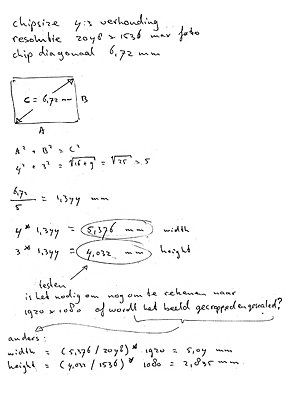 chipsize 4:3 verhouding
resolutie 2048 x 1536 max foto
chip diagonaal 6,72 mm
C = 6,72 mm B
A
A² + B² = C²
4² + 3² = √16+9 = √25 = 5
6,72 / 5 = 1,344 mm
4 * 1,344 = 5,376 mm width
3 * 1,344 = 4,032 mm height
testen
is het nodig om nog om te rekenen naar
1920 x 1080 of wordt het beeld gecropped en gescaled?
anders:
width = (5,376 / 2048) * 1920 = 5,04 mm
height = (4,032 / 1536) * 1080 = 2,835 mm